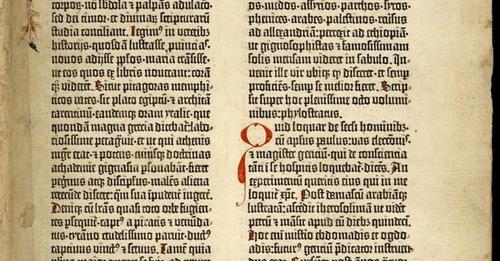 corporis, nō subdola et palpās adulacō,
sed dei timor, et diuinarū scripturarū
studia conciliant. Legimus in veteribs
historijs, quosdā lustrasse, puīncias,
nouos adijsse ppl̄os, maria trāsisse,
ut eos quos ex libris nouerant: coram
q̄z viderēt. Sicut pitagoras memphi-
ticos vates, sic plato egiptū, et architā
tarentinū, eandemq̄z oram ytalie, que
quondā magna grecia dicebat̄: labo-
riosissime peragrauit: et ut qui athenis
mgr̄ erat, et potens, cuiusq̄z doctrinas
achademie gignasia psonabāt: fieret
pegrinus atq̄z discipulus, malēs aliena
verecūde discere: q̄m sua īpudent̄ ingerere.
Deniqz cū lr̄as quasi toto orbe fugien-
tes psequit̄: capt⁹ a piratis et venunda-
tus, tyrāno crudelissimo paruit: duct⁹
captiuus vinct⁹ et seruus. Tamē quia
dos, medos, assyrios, parthos, syros,
phenices, arabes, palestinos, reūsus
ad allexandriā: perrexit ad ethiopiā:
ut gignosophistas et famosissimam
solis mensam videret in sabulo. In-
uenit ille vir ubiqz qd̄ disceret: et semp
proficiēs, semp se melior fieret. Scrip-
sit super hoc plenissime octo volumi-
nibus: phylostratus.
Quid loquar de seculi hominibz:
cū apostolus paulus: vas electōnis,
et magister genciū, qui de consciencia
tāti ī se hospitis loquebat̄, dicēs. An
experimentū queritis eius qui in me
loquit̄ xp̄c. Post damascū arabiāq̄z
lustratā: ascēdit iherosolimā ut vide-
ret petrū et māsit apud eū diebz quindeci.
Hoc enī misterio ebdomadis et ogdo-
adis: futur⁹ genciū p̄dicator instruen-